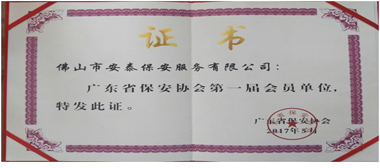 证书
佛山市安泰保安服务有限公司：
广东省保安协会第一届会员单位，
特发此证。
广东省保安协会
2017年5月